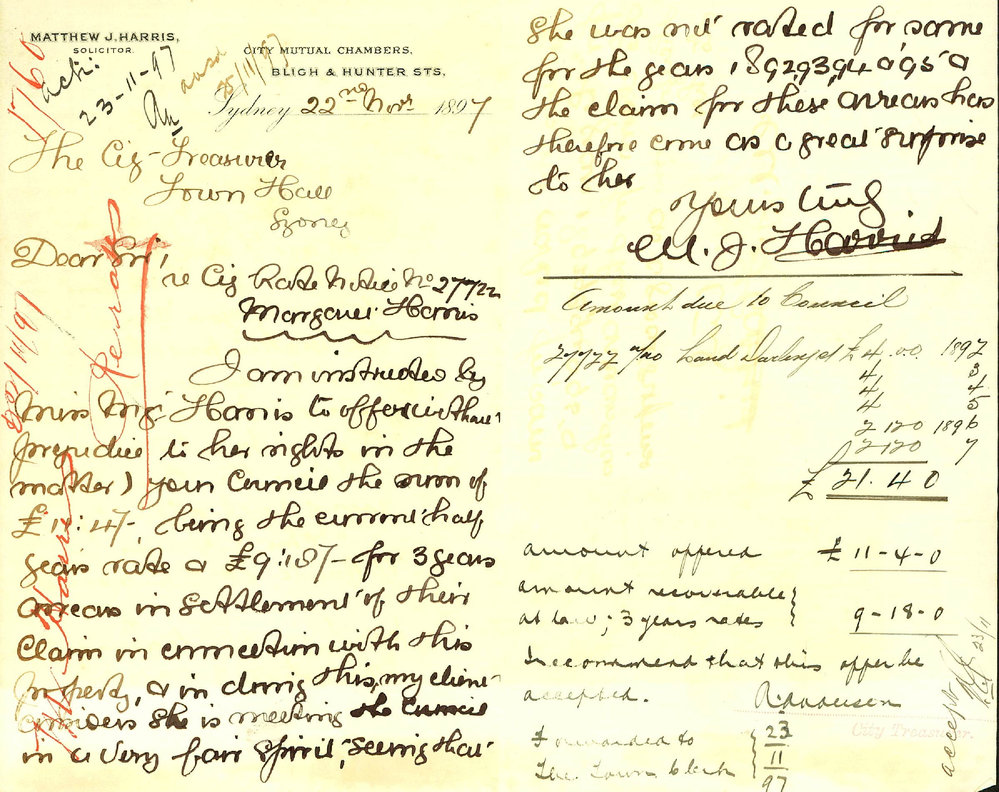 MATTHEW J. HARRIS,
SOLICITOR.
CITY MUTUAL CHAMBERS,
BLIGH & HUNTER STS.
1766
ack:
23-11-97
25/11/97
Sydney 22nd Novr. 1897
The City Treasurer
Town Hall
Sydney
Dear Sir,
re City Rate Notice No 27722
Margaret Harris
I am instructed by
Miss Mgt Harris to offer (without
prejudice to her rights in the
matter) your Council the sum of
£11:4/-, being the current half
years rate & £9:18/- for 3 years
arrears in settlement of their
Claim in connection with this
property, & in doing this, my client
considers she is meeting the Council
in a very fair spirit, seeing that
she was not rated for same
for the years 1892, 93, 94 & 95 &
the claim for these arrears has
therefore come as a great surprise
to her
Yours truly
M. J. Harris
Amount due to Council
27722 a/c Land £4.0.0. 1892
4 3
4 4
4 5
2 12 0 1896
2 12 0 7
£ 21. 4 0
amount offered £ 11-4-0
amount recoverable
at law; 3 years rates 9-18-0
I recommend that this offer be
accepted.
City Treasurer.
Forwarded to
The Town Clerk
23
11
97
accept
23/11